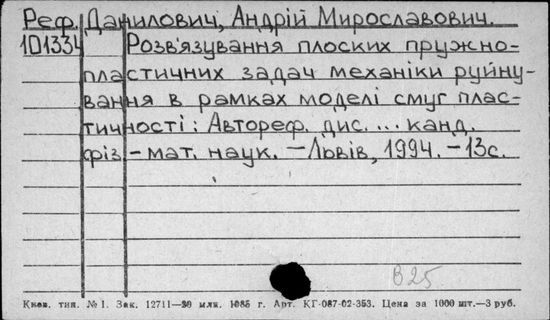 Реф. Данилович, Андрій Мирославович.
1D1334 Розв'язування плоских пружно-
пластичних задач механіки руйну-
вання в рамках моделі смуг плас-
тичності: Автореф. дис. ... канд.
фіз.-мат. наук. — Львів, 1994. — 13с.
В25
Киев. тип. № 1. Зак. 12711—30 млн. 1985 г. Арт. КГ-087-02-353. Цена за 1000 шт.—3 руб.